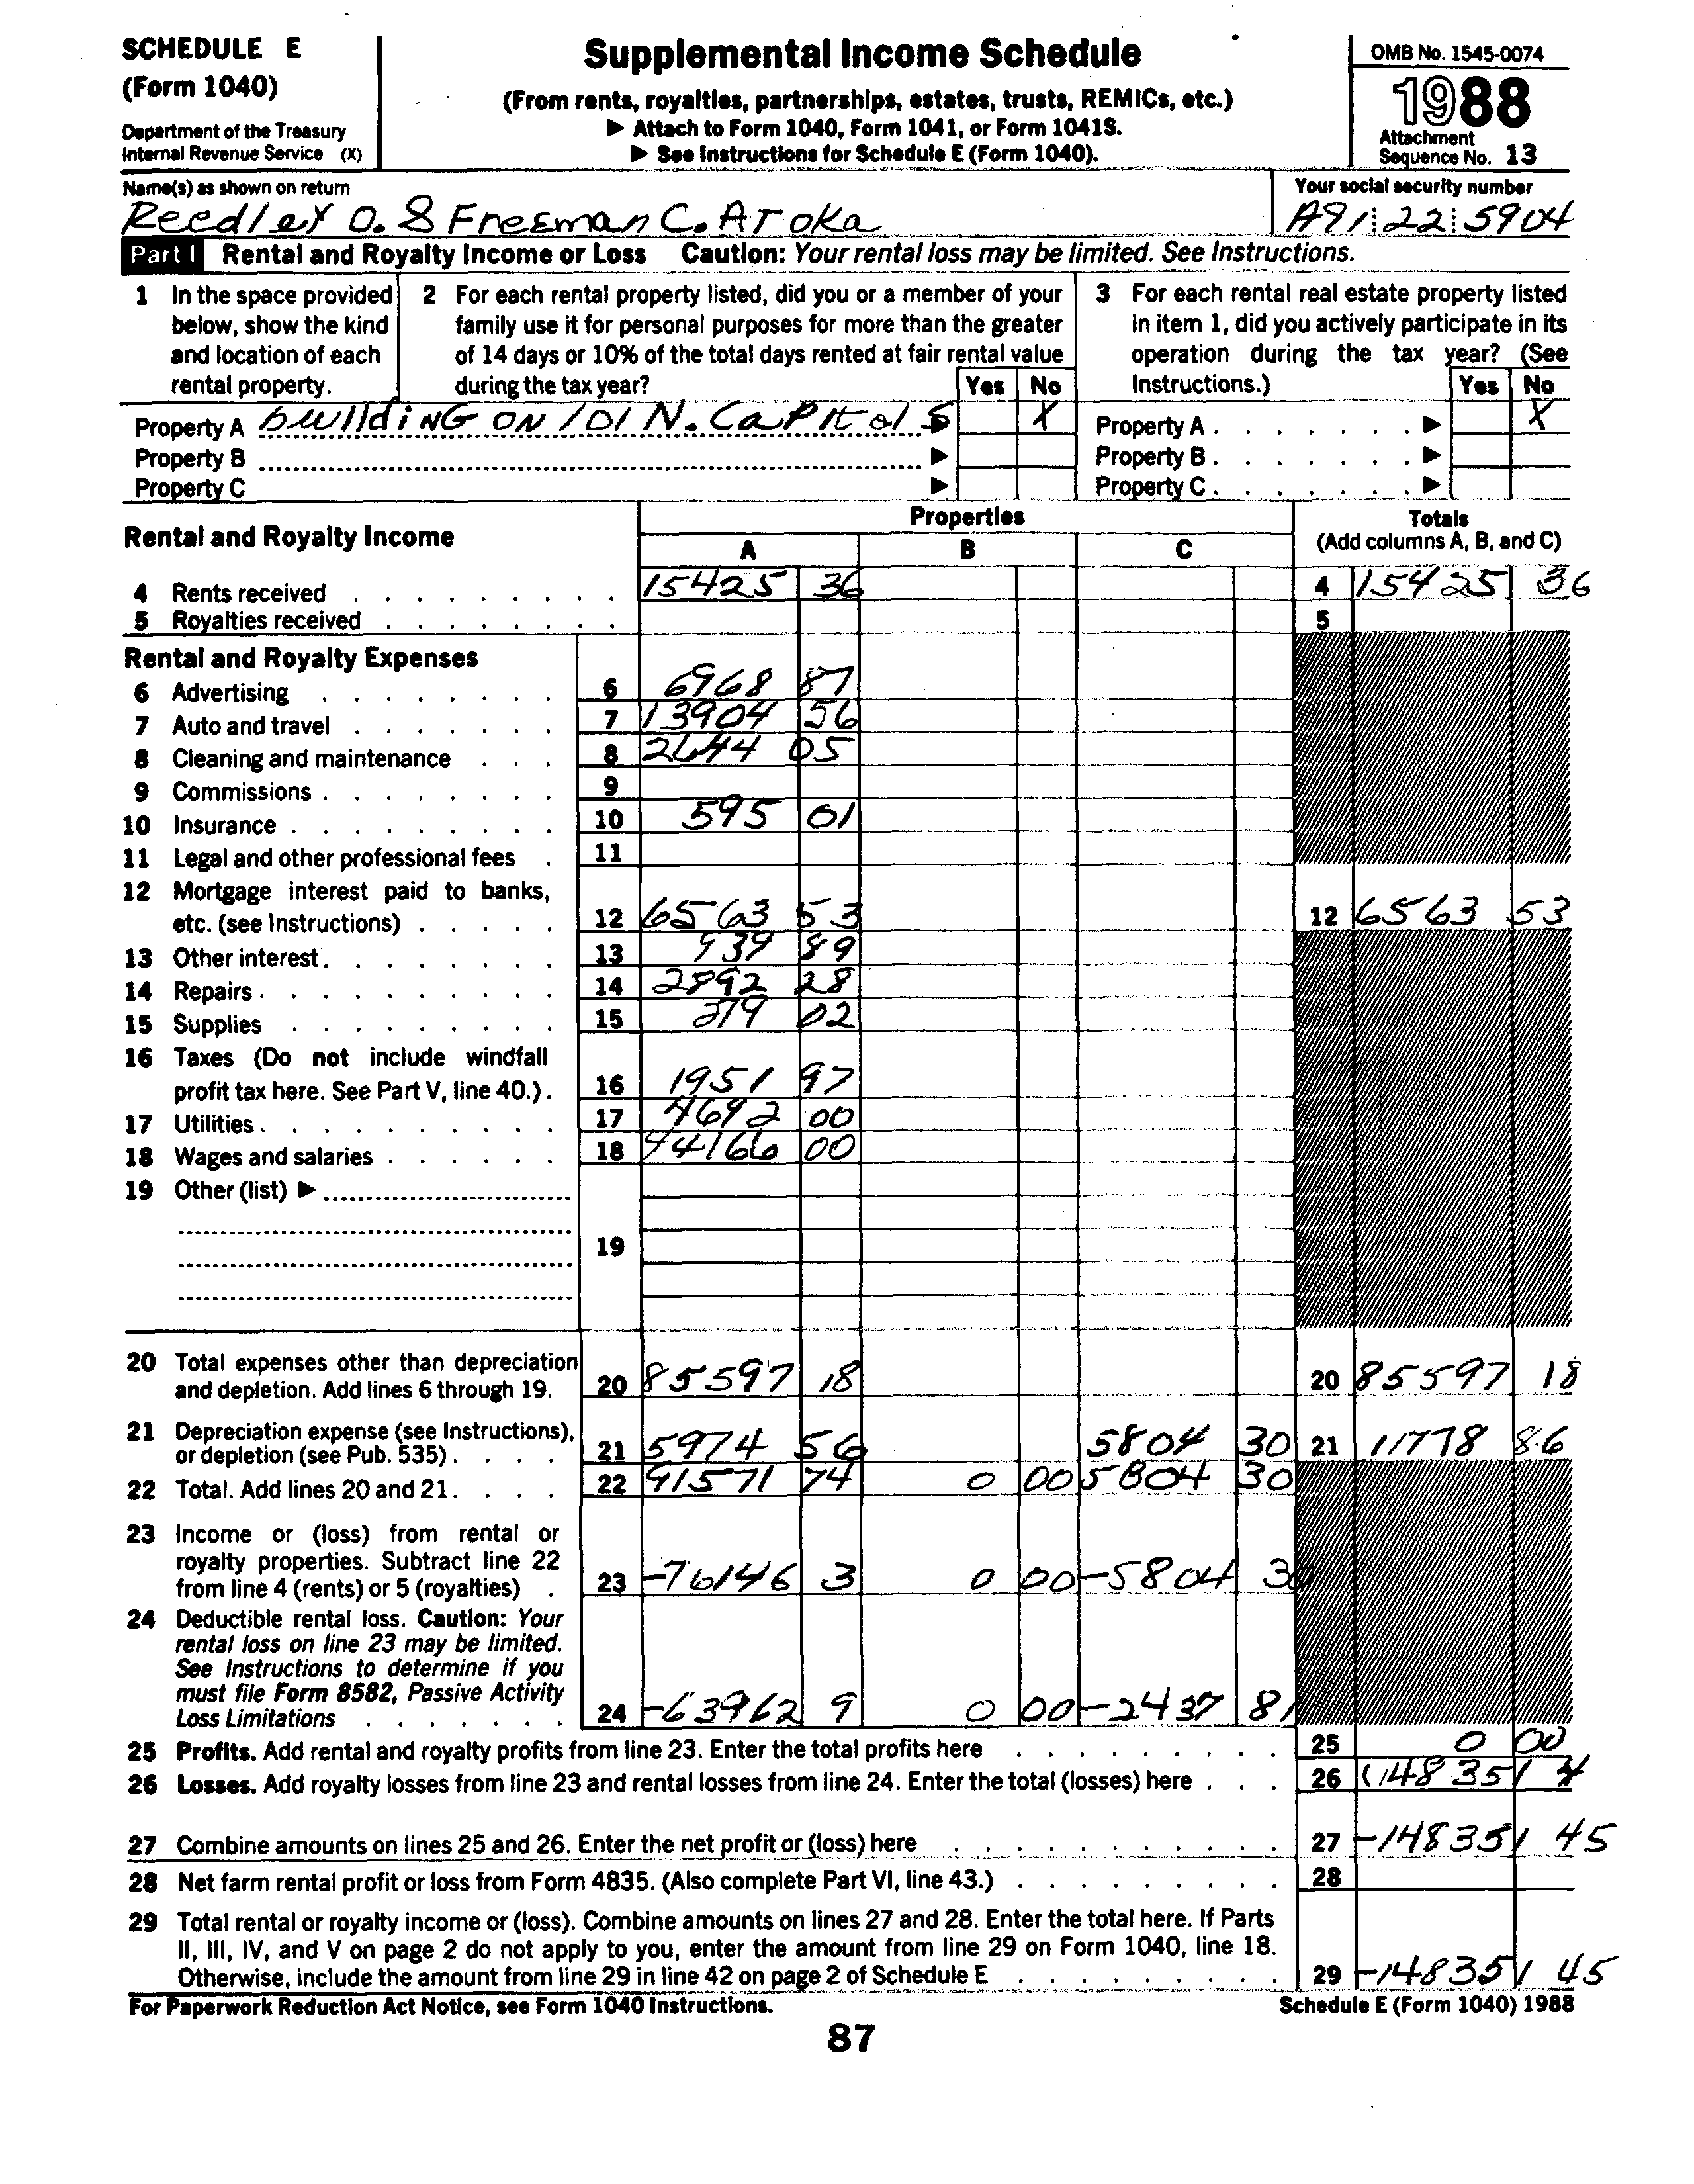 SCHEDULE E
(Form 1040)
Department of the Treasury
Internal Revenue Service (X)
Supplemental Income Schedule
(From rents, royalties, partnerships, estates, trusts, REMICs, etc.)
▶ Attach to Form 1040, Form 1041, or Form 1041S.
▶ See Instructions for Schedule E (Form 1040).
OMB No. 1545-0074
1988
Attachment
Sequence No. 13
Name(s) as shown on return
Reedley O. & Freeman C. Aroka
Your social security number
A91 22 5904
Part I Rental and Royalty Income or Loss Caution: Your rental loss may be limited. See Instructions.
1 In the space provided below, show the kind and location of each rental property.
2 For each rental property listed, did you or a member of your family use it for personal purposes for more than the greater of 14 days or 10% of the total days rented at fair rental value during the tax year?
Yes No
3 For each rental real estate property listed in item 1, did you actively participate in its operation during the tax year? (See Instructions.)
Yes No
Property A building on 101 N. Capitol S ▶ X Property A ▶ X
Property B ▶ Property B ▶
Property C ▶ Property C ▶
Rental and Royalty Income
Properties
A B C
Totals
(Add columns A, B, and C)
4 Rents received 15425 36 4 15425 36
5 Royalties received 5
Rental and Royalty Expenses
6 Advertising 6 6968 87
7 Auto and travel 7 13904 56
8 Cleaning and maintenance 8 2644 05
9 Commissions 9
10 Insurance 10 595 01
11 Legal and other professional fees 11
12 Mortgage interest paid to banks,
etc. (see Instructions) 12 6563 53 12 6563 53
13 Other interest 13 939 89
14 Repairs 14 2892 28
15 Supplies 15 279 02
16 Taxes (Do not include windfall
profit tax here. See Part V, line 40.) 16 1951 97
17 Utilities 17 4692 00
18 Wages and salaries 18 44166 00
19 Other (list) ▶
19
20 Total expenses other than depreciation
and depletion. Add lines 6 through 19. 20 85597 18 20 85597 18
21 Depreciation expense (see Instructions),
or depletion (see Pub. 535) 21 5974 56 5804 30 21 11778 86
22 Total. Add lines 20 and 21 22 91571 74 0 00 5804 30
23 Income or (loss) from rental or
royalty properties. Subtract line 22
from line 4 (rents) or 5 (royalties) 23 -76146 3 0 00 -5804 30
24 Deductible rental loss. Caution: Your
rental loss on line 23 may be limited.
See Instructions to determine if you
must file Form 8582, Passive Activity
Loss Limitations 24 -63962 9 0 00 -2437 81
25 Profits. Add rental and royalty profits from line 23. Enter the total profits here 25 0 00
26 Losses. Add royalty losses from line 23 and rental losses from line 24. Enter the total (losses) here 26 (148351 4
27 Combine amounts on lines 25 and 26. Enter the net profit or (loss) here 27 -148351 45
28 Net farm rental profit or loss from Form 4835. (Also complete Part VI, line 43.) 28
29 Total rental or royalty income or (loss). Combine amounts on lines 27 and 28. Enter the total here. If Parts
II, III, IV, and V on page 2 do not apply to you, enter the amount from line 29 on Form 1040, line 18.
Otherwise, include the amount from line 29 in line 42 on page 2 of Schedule E 29 -148351 45
For Paperwork Reduction Act Notice, see Form 1040 Instructions.
Schedule E (Form 1040) 1988
87